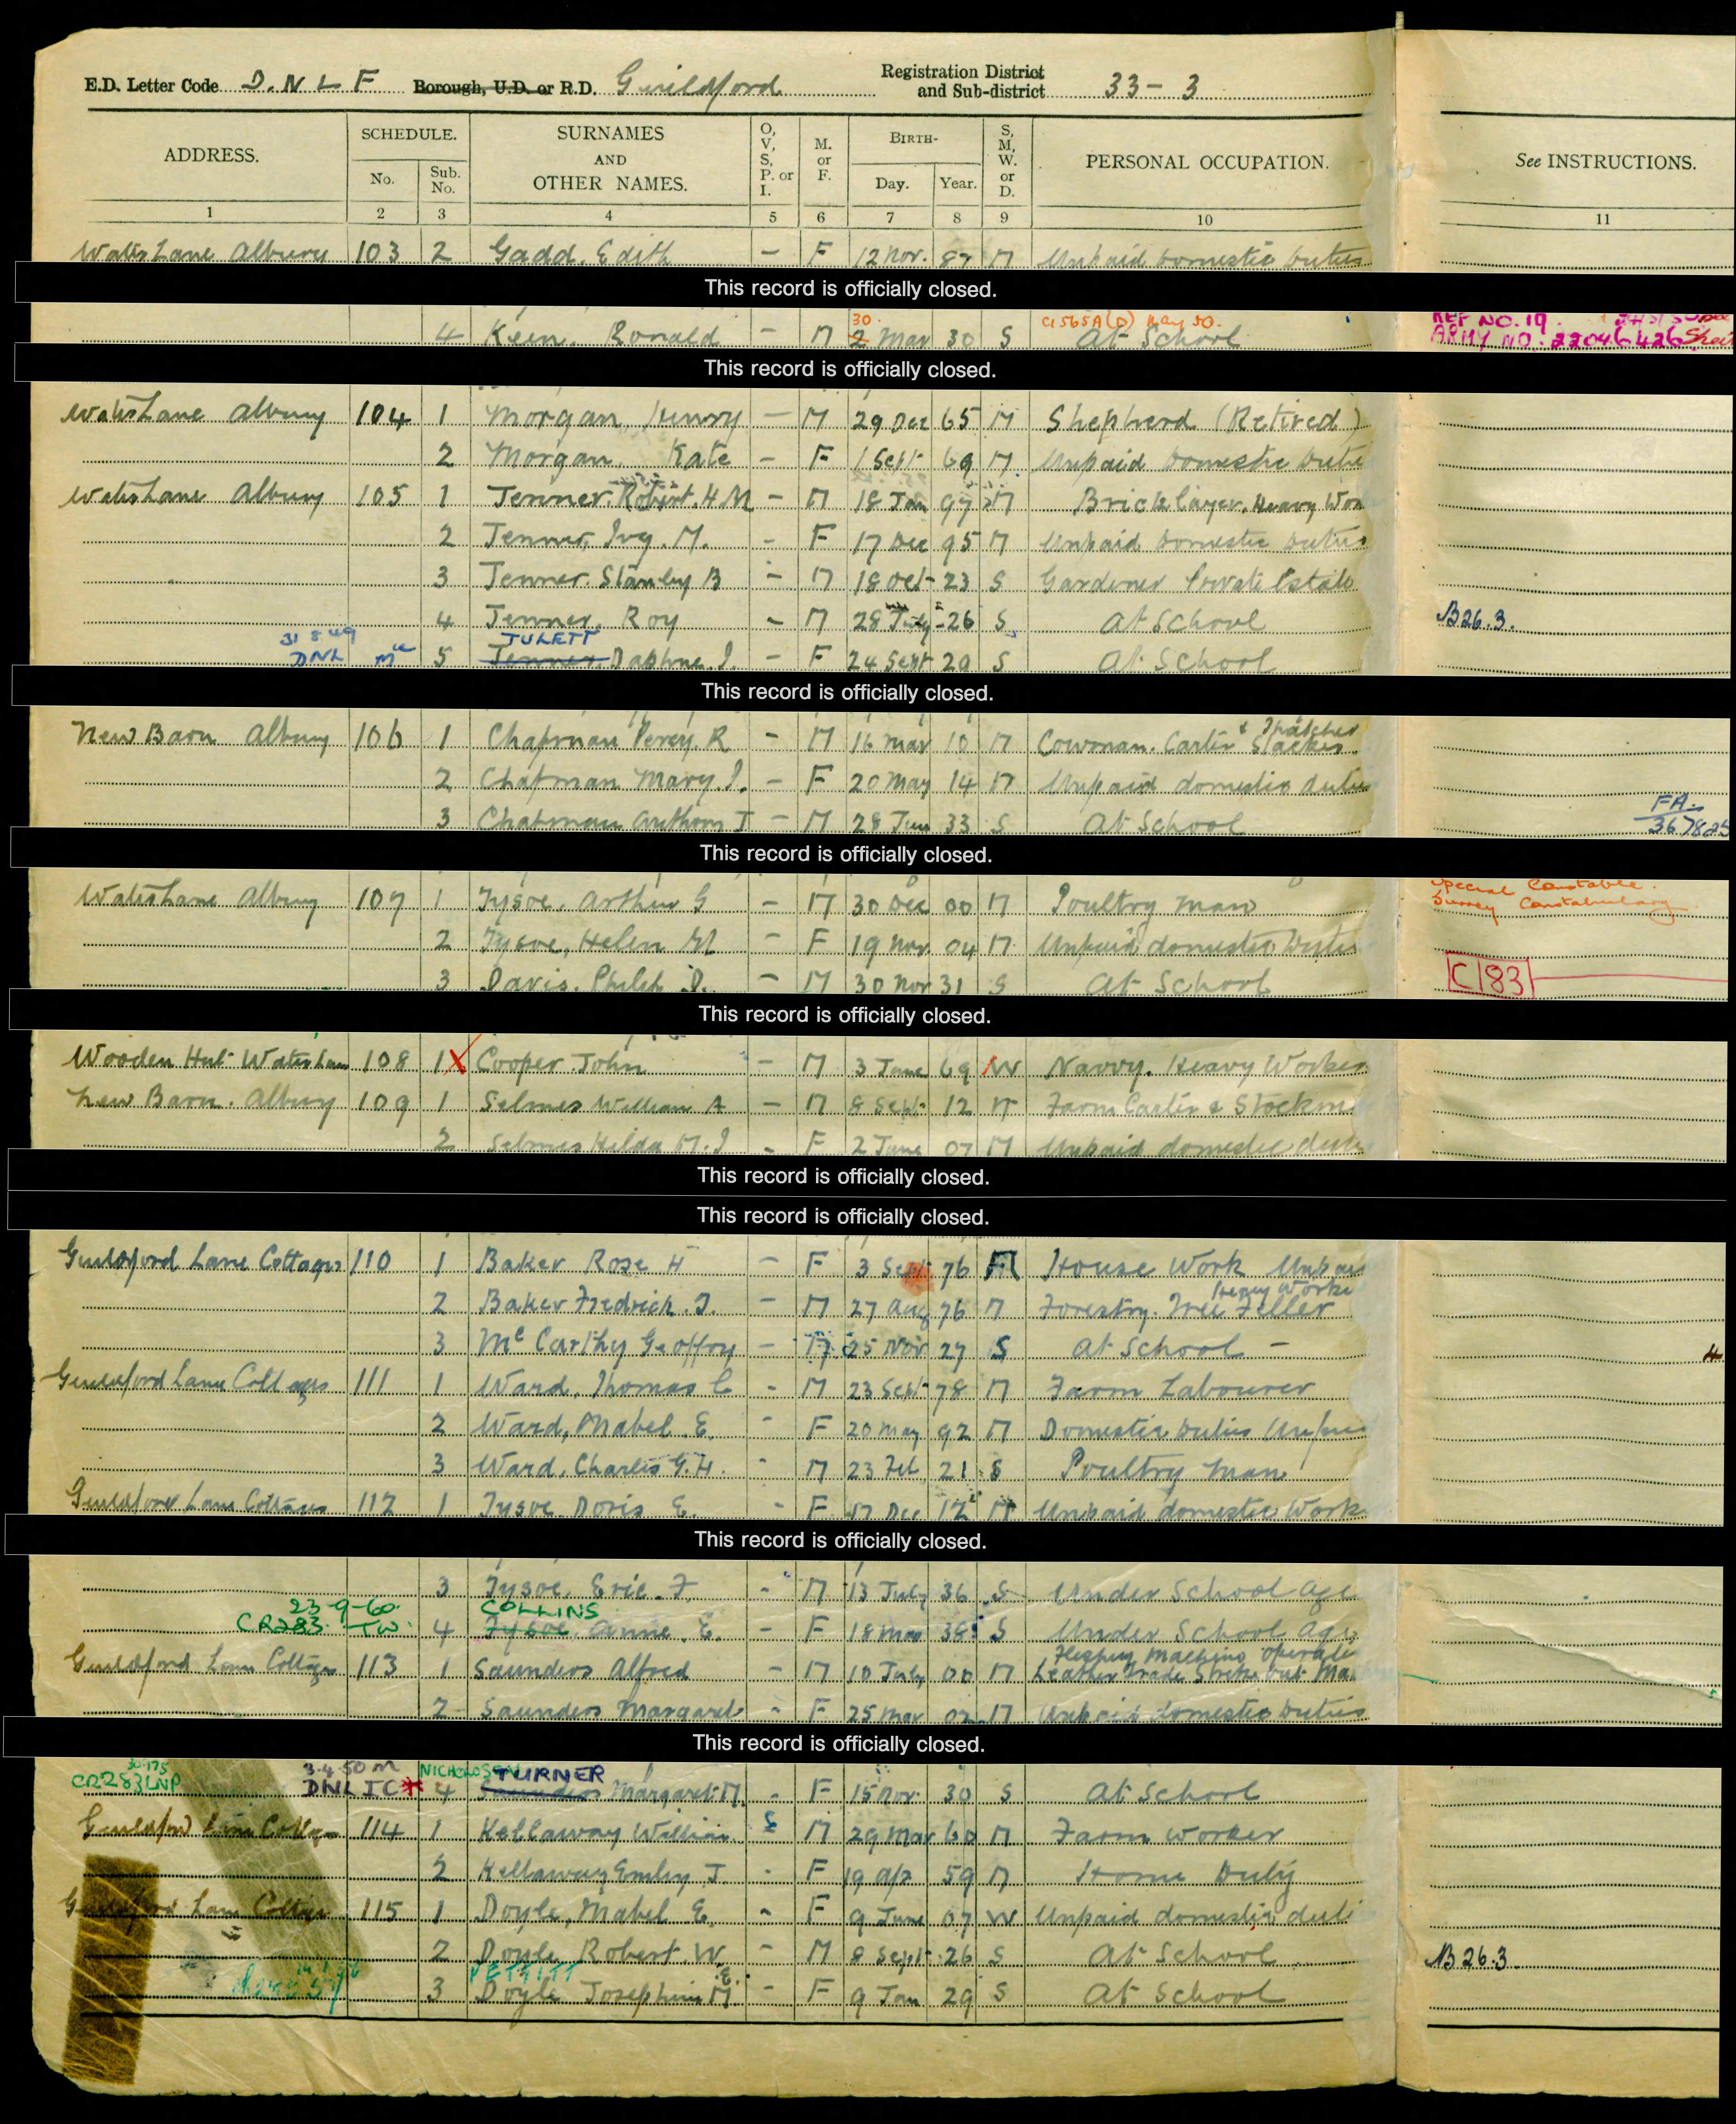 E.D. Letter Code D.N L F Borough, U.D. or R.D. Guildford Registration District and Sub-district 33 - 3
ADDRESS. SCHEDULE. No. Sub. No. SURNAMES AND OTHER NAMES. O, V, S, P. or I. M. or F. BIRTH- Day. Year. S, M, W. or D. PERSONAL OCCUPATION. See INSTRUCTIONS.
1 2 3 4 5 6 7 8 9 10 11
Waters Lane Albury 103 2 Gadd. Edith - F 12 Nov. 87 M Unpaid Domestic Duties
This record is officially closed.
30. May 50. REF NO. 19
4 Keen. Ronald - M 2 Mar 30 S At School ARMY NO. 22046426
This record is officially closed.
Waters Lane Albury 104 1 Morgan Henry - M 29 Dec 65 M Shepherd (Retired)
2 Morgan. Kate - F 1 Sept 69 M Unpaid Domestic Dutie
Waters Lane Albury 105 1 Jenner. Robert. H.M - M 18 Jan 97 M Bricklayer. Heavy Wor
2 Jenner, Ivy. M. - F 17 Dec 95 M Unpaid Domestic Duties
3 Jenner. Stanley B - M 18 Oct 23 S Gardener Private Estate
4 Jenner, Roy - M 28 July 26 S At School B26.3.
31 8 49 JULETT
DNL Mce 5 Jenner Daphne. I. - F 24 Sept 20 S At School
This record is officially closed.
New Barn Albury 106 1 Chapman Percy. R - M 16 Mar 10 M Cowman. Carter & Thatcher Stacker.
2 Chapman Mary. I. - F 20 May 14 M Unpaid domestic duties
3 Chapman Anthony J - M 28 Jun 33 S At School FA 367825
This record is officially closed.
Waters Lane Albury 107 1 Tysoe. Arthur G - M 30 Dec 00 M Poultry man Special Constable. Surrey Constabulary
2 Tysoe, Helen M - F 19 Nov. 04 M Unpaid domestic Duties
3 Davis. Philip D. - M 30 Nov 31 S At School C 83
This record is officially closed.
Wooden Hut Waters Lane 108 1 X Cooper John - M 3 June 69 W Navvy. Heavy Worker
New Barn. Albury 109 1 Selmes William A - M 8 Sept 12 M Farm Carter & Stockm
2 Selmes Hilda M. I - F 2 June 07 M Unpaid domestic duti
This record is officially closed.
This record is officially closed.
Guildford Lane Cottages 110 1 Baker Rose H - F 3 Sept 76 M House Work Unpai
2 Baker Fredrick. J. - M 27 Aug 76 M Forestry. Tree Feller Heavy Worke
3 Mc Carthy Geoffroy - M 25 Nov 27 S At School -
Guildford Lane Cottages 111 1 Ward, Thomas C - M 23 Sept 78 M Farm Labourer
2 Ward, Mabel. E. - F 20 May 92 M Domestic Duties Unpai
3 Ward, Charles G. H. - M 23 Feb 21 S Poultry man
Guildford Lane Cottages 112 1 Tysoe Doris E. - F 17 Dec 12 M Unpaid domestic Work
This record is officially closed.
3 Tysoe. Eric. F. - M 13 July 36 S Under School age
23-9-60. COLLINS
CR283. TW. 4 Tysoe Annie. E. - F 18 Mar 38 S Under School Age
Guildford Lane Cottages 113 1 Saunders Alfred - M 10 July 00 M Fleshing Machine operate Leather Trade Strike out Ma
2 Saunders Margaret - F 25 Mar 02 M Unpaid domestic Duties
This record is officially closed.
30.1.75 3.4.50 M NICHOLSON TURNER
CR283 LNP DNL IC * 4 Saunders Margaret M. - F 15 Nov. 30 S At School
Guildford Lane Cottage 114 1 Kellaway William S M 29 Mar 60 M Farm Worker
2 Kellaway Emily J - F 19 Apr 59 M Home Duty
Guildford Lane Cottage 115 1 Doyle, Mabel E. - F 9 June 07 W Unpaid domestic duti
2 Doyle Robert. W. - M 8 Sept 26 S At School B26.3
PETTITT
3 Doyle Josephine M. E. - F 9 Jan 29 S At School